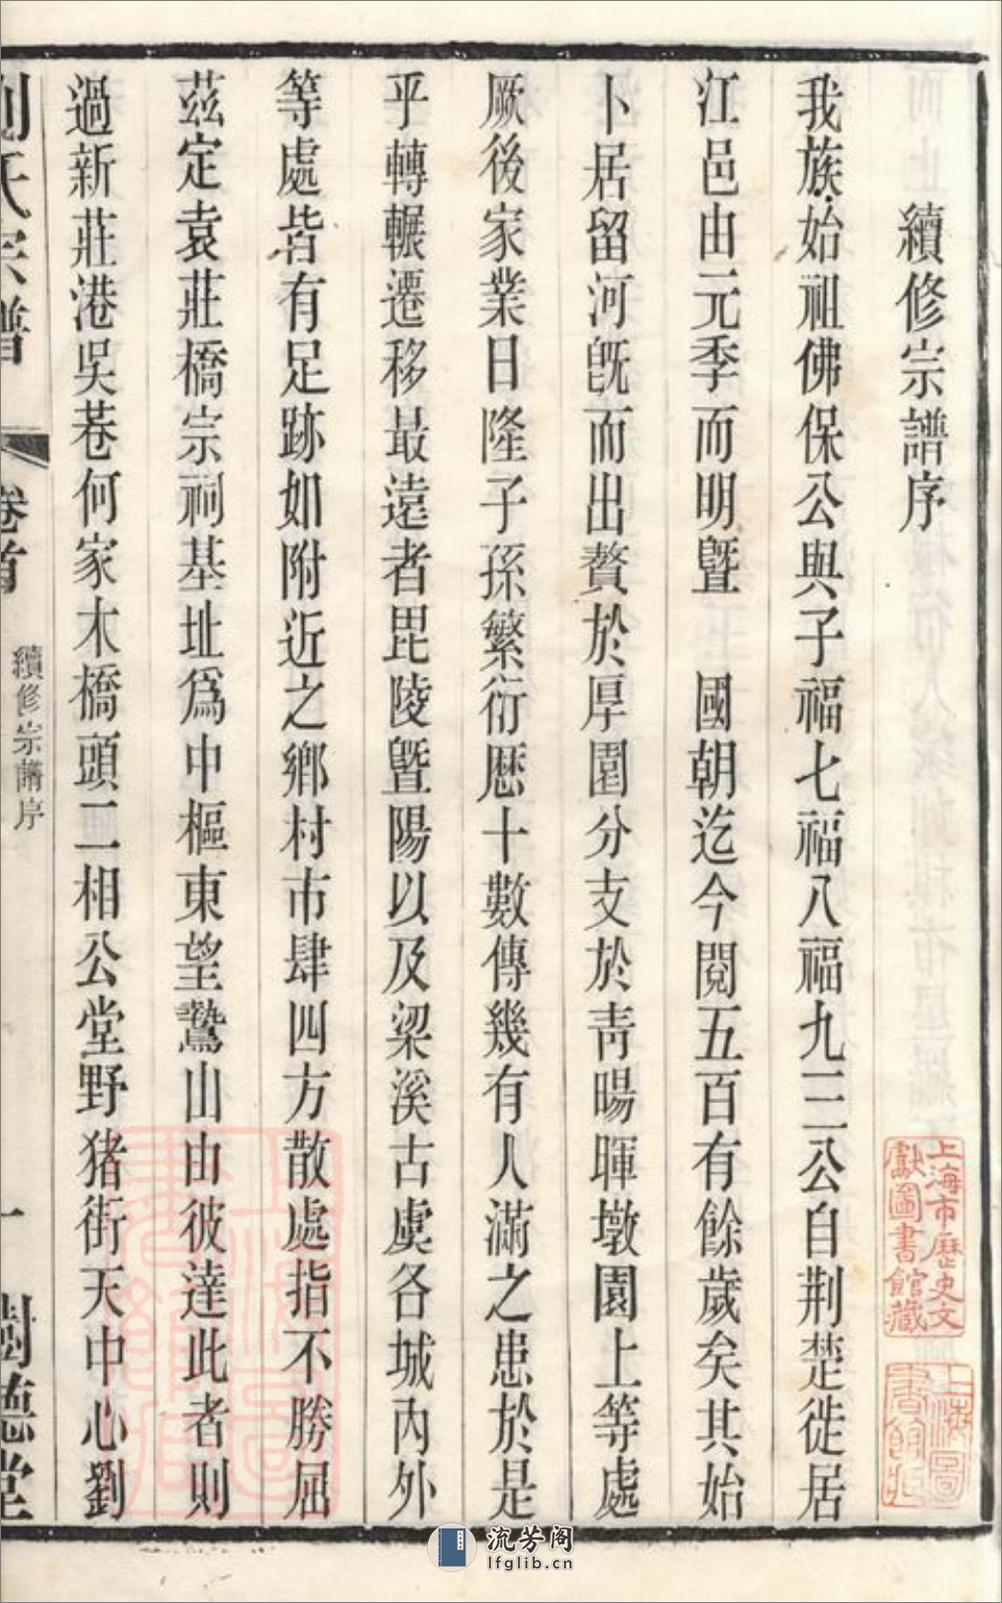 續修宗譜序
我族始祖佛保公與子福七福八福九三公自荆楚徙居
江邑由元季而明曁　國朝迄今閱五百有餘歲矣其始
卜居留河旣而出贅於厚園分支於靑暘暉墩園上等處
厥後家業日隆子孫繁衍歷十數傳幾有人滿之患於是
乎轉輾遷移最遠者毘陵曁陽以及梁溪古虞各城內外
等處皆有足跡如附近之鄉村市肆四方散處指不勝屈
茲定袁莊橋宗祠基址爲中樞東望鷲山由彼達此者則
過新莊港吳巷何家木橋頭二相公堂野猪街天中心劉
劉氏宗譜
卷首
續修宗譜序
一
樹德堂
上海市歷史文
獻圖書館藏
上海圖
書館藏
流芳阁
lfglib.cn